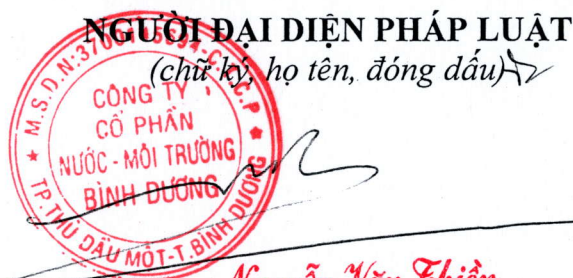 NGƯỜI ĐẠI DIỆN PHÁP LUẬT
(chữ ký, họ tên, đóng dấu)
CÔNG TY
CỔ PHẦN
NƯỚC - MÔI TRƯỜNG
BÌNH DƯƠNG
TP.THỦ DẦU MỘT-T.BÌNH DƯƠNG
Nguyễn Văn Thiền